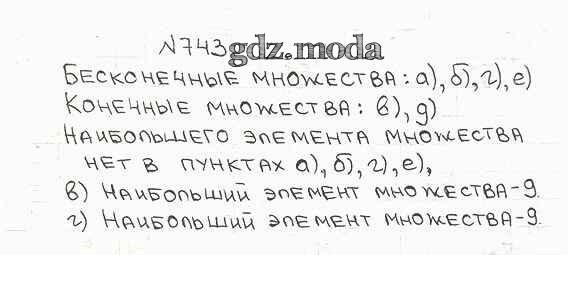 №743 gdz.moda
БЕСКОНЕЧНЫЕ МНОЖЕСТВА: а), б), г), е)
КОНЕЧНЫЕ МНОЖЕСТВА: в), д)
НАИБОЛЬШЕГО ЭЛЕМЕНТА МНОЖЕСТВА
НЕТ В ПУНКТАХ а), б), г), е),
в) НАИБОЛЬШИЙ ЭЛЕМЕНТ МНОЖЕСТВА-9.
г) НАИБОЛЬШИЙ ЭЛЕМЕНТ МНОЖЕСТВА-9.